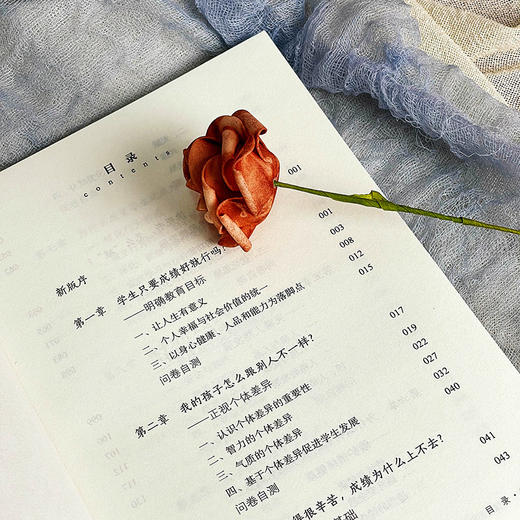 目录
contents
新版序 001
第一章 学生只要成绩好就行吗？ 001
——明确教育目标
一、让人生有意义 003
二、个人幸福与社会价值的统一 008
三、以身心健康、人品和能力为落脚点 012
问卷自测 015
第二章 我的孩子怎么跟别人不一样？ 017
——正视个体差异
一、认识个体差异的重要性 019
二、智力的个体差异 022
三、气质的个体差异 027
四、基于个体差异促进学生发展 032
问卷自测 040
得很辛苦，成绩为什么上不去？ 041
基础 043
目录·